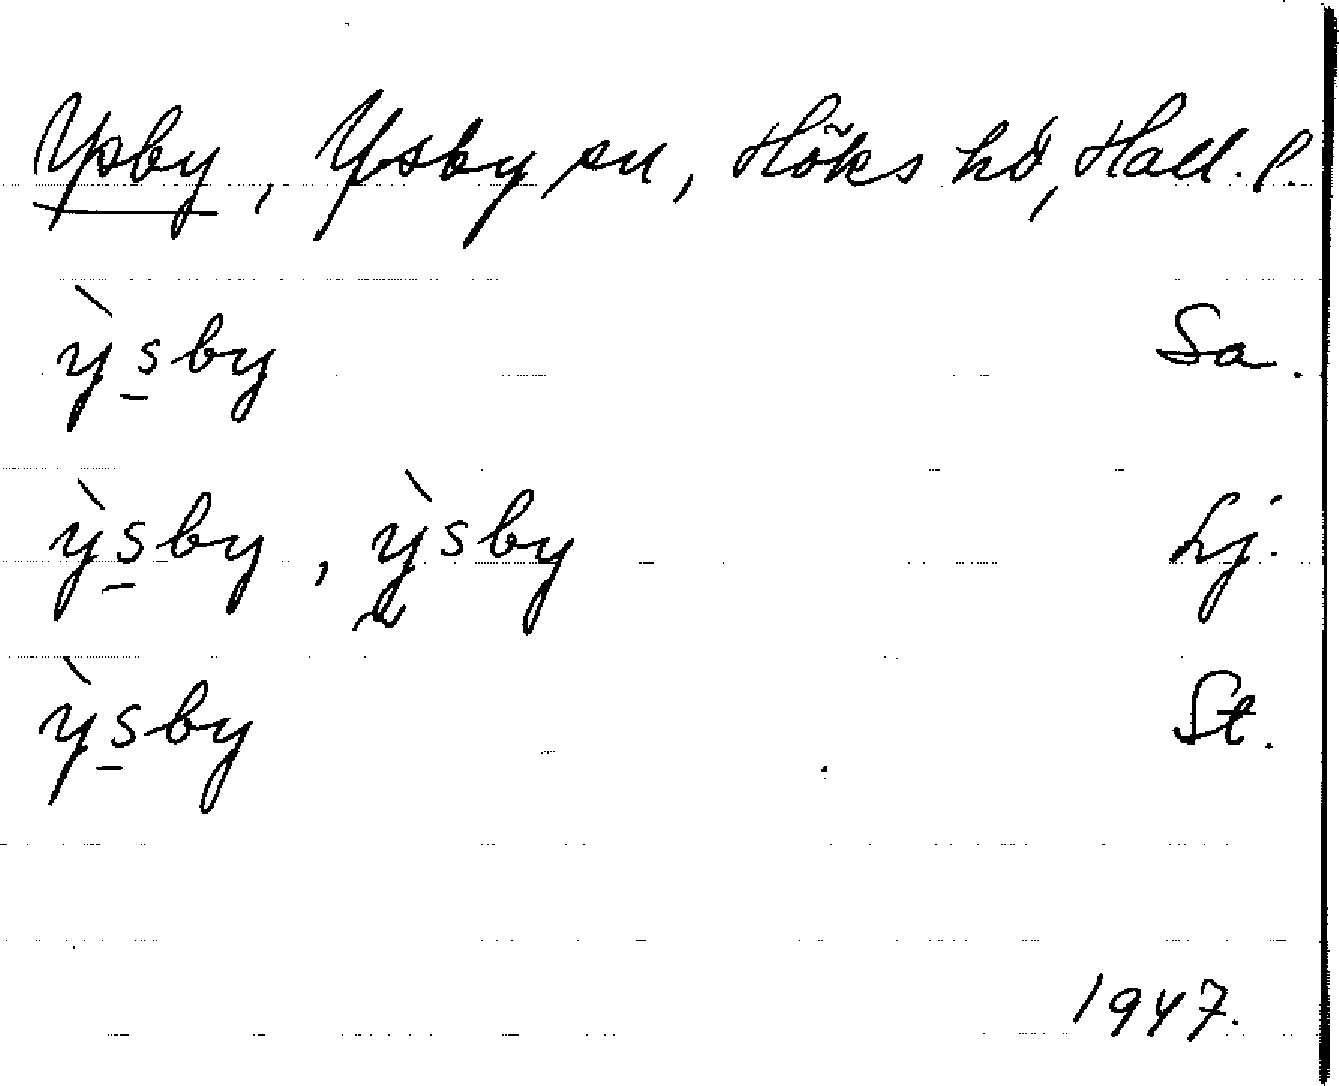 Ysby, Ysby sn, Höks hd, Hall. l.
ỳsby Sa.
ỳsby, ỳsby Lj.
ỳsby St.
1947.